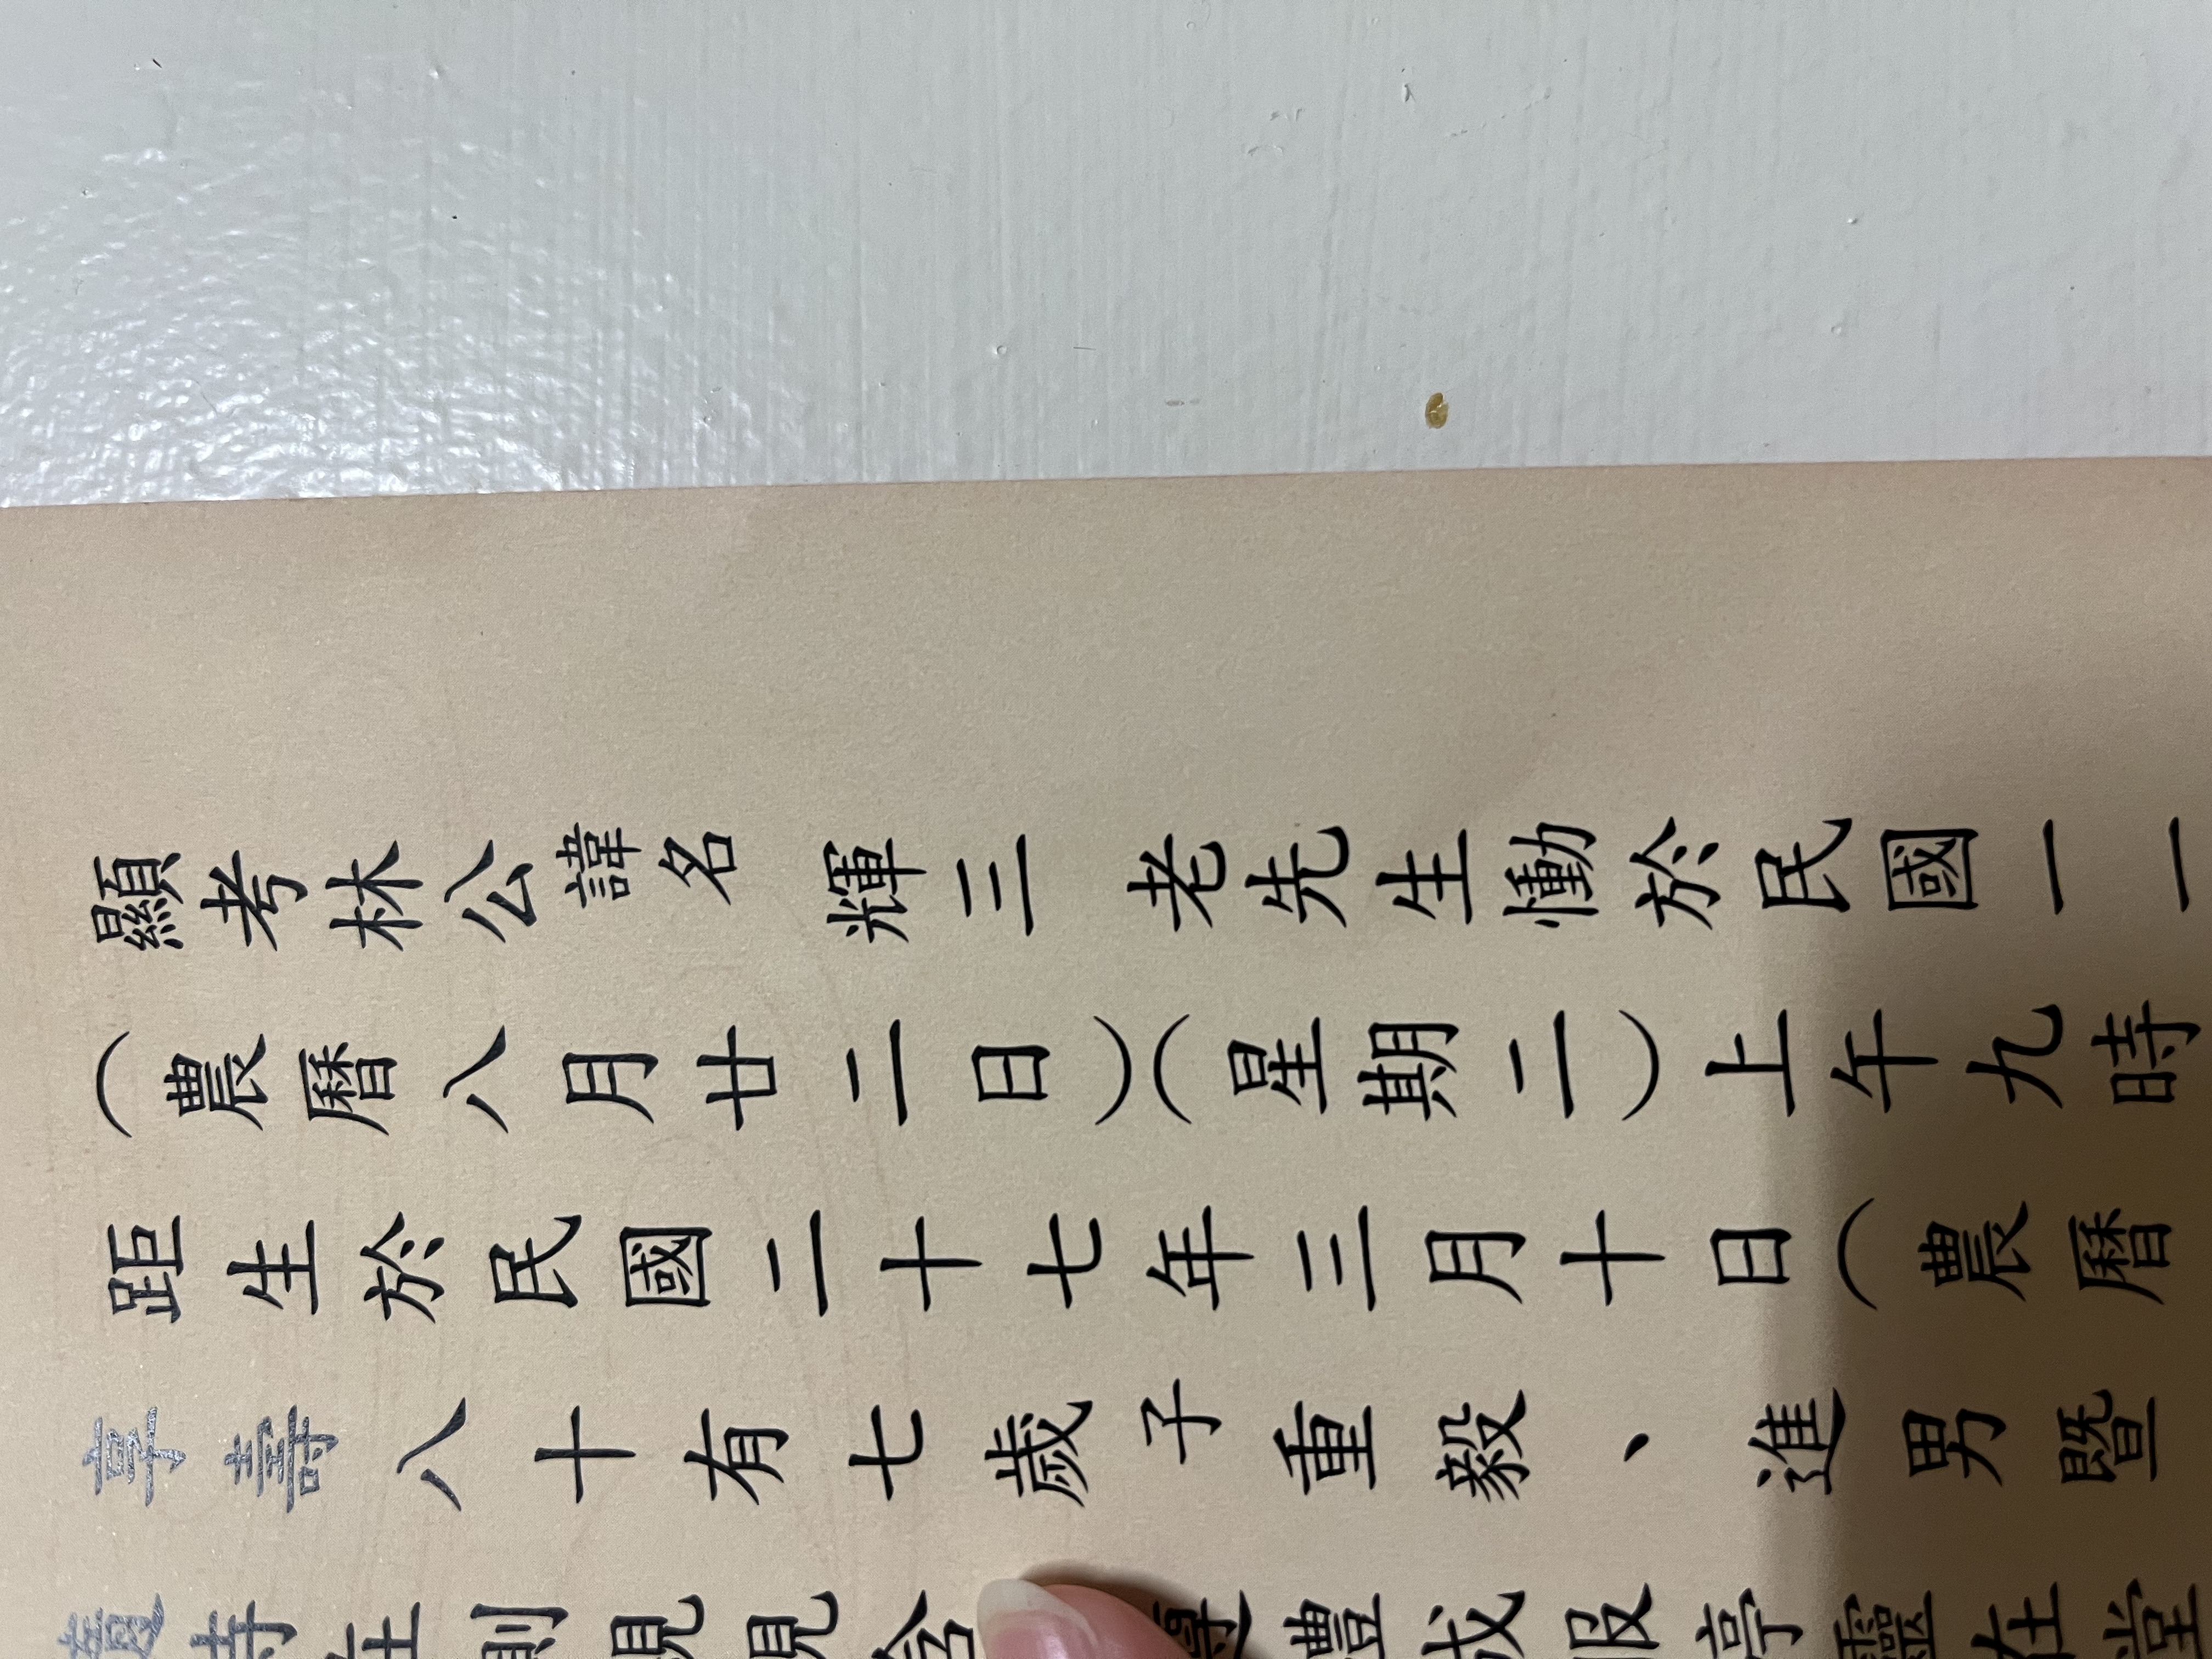 顯考林公諱名輝三老先生慟於民國一一
（農曆八月廿二日）（星期二）上午九時
距生於民國二十七年三月十日（農曆
享壽八十有七歲子重毅、進男暨
寺在側視視含 禮成服亭靈在堂